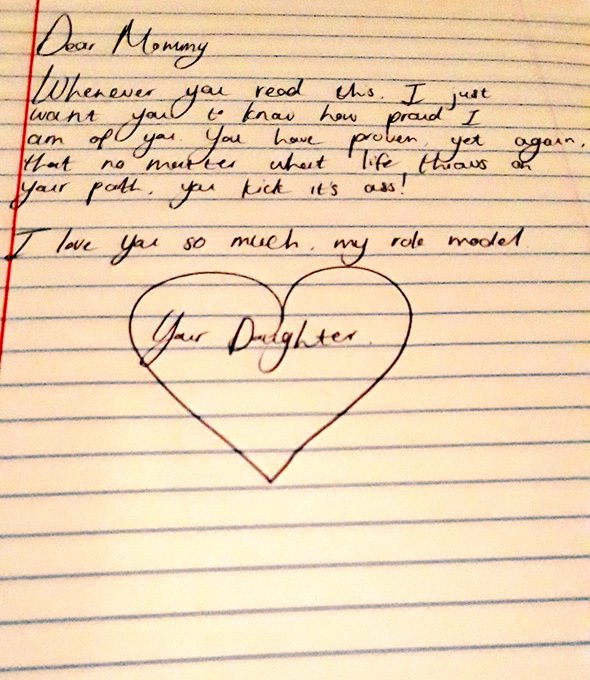 Dear Mommy
Whenever you read this. I just
want you to know how proud I
am of you. You have proven, yet again,
that no matter what life throws on
your path, you kick it's ass!
I love you so much, my role model.
Your Daughter.